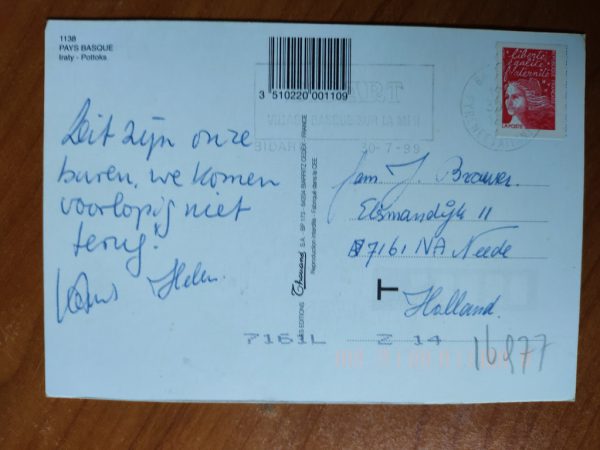 1138
PAYS BASQUE
Iraty - Pottoks
3 510220 001109
BIDART
VILLAGE BASQUE SUR LA MER
BIDART 30-7-99
Liberté
égalité
fraternité
LA POSTE
Dit zijn onze
buren, we komen
voorlopig niet
terug!
Helen.
LES EDITIONS Thouand S.A. - BP 173 - 64204 BIARRITZ CEDEX - FRANCE
Reproduction interdite - Fabriqué dans la CEE
Fam. J. Brouwer.
Elsmandijk 11
7161 NA Neede
T
Holland.
7161L Z 14
16977